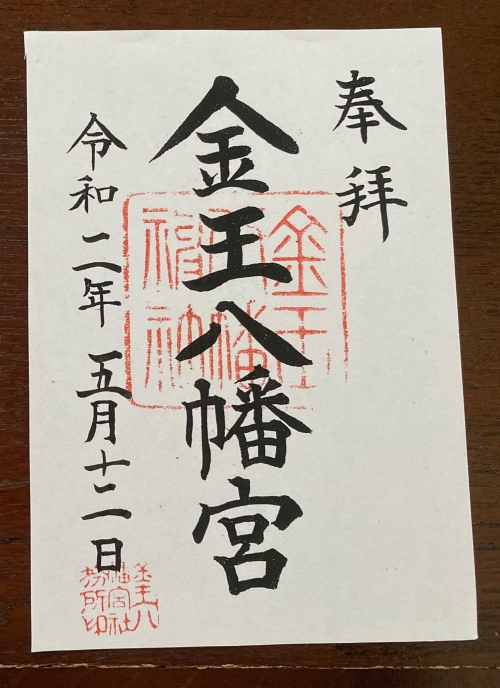 奉拝
金王八幡宮
令和二年五月十二日
金王
八幡
神
金王八
幡宮社
務所印